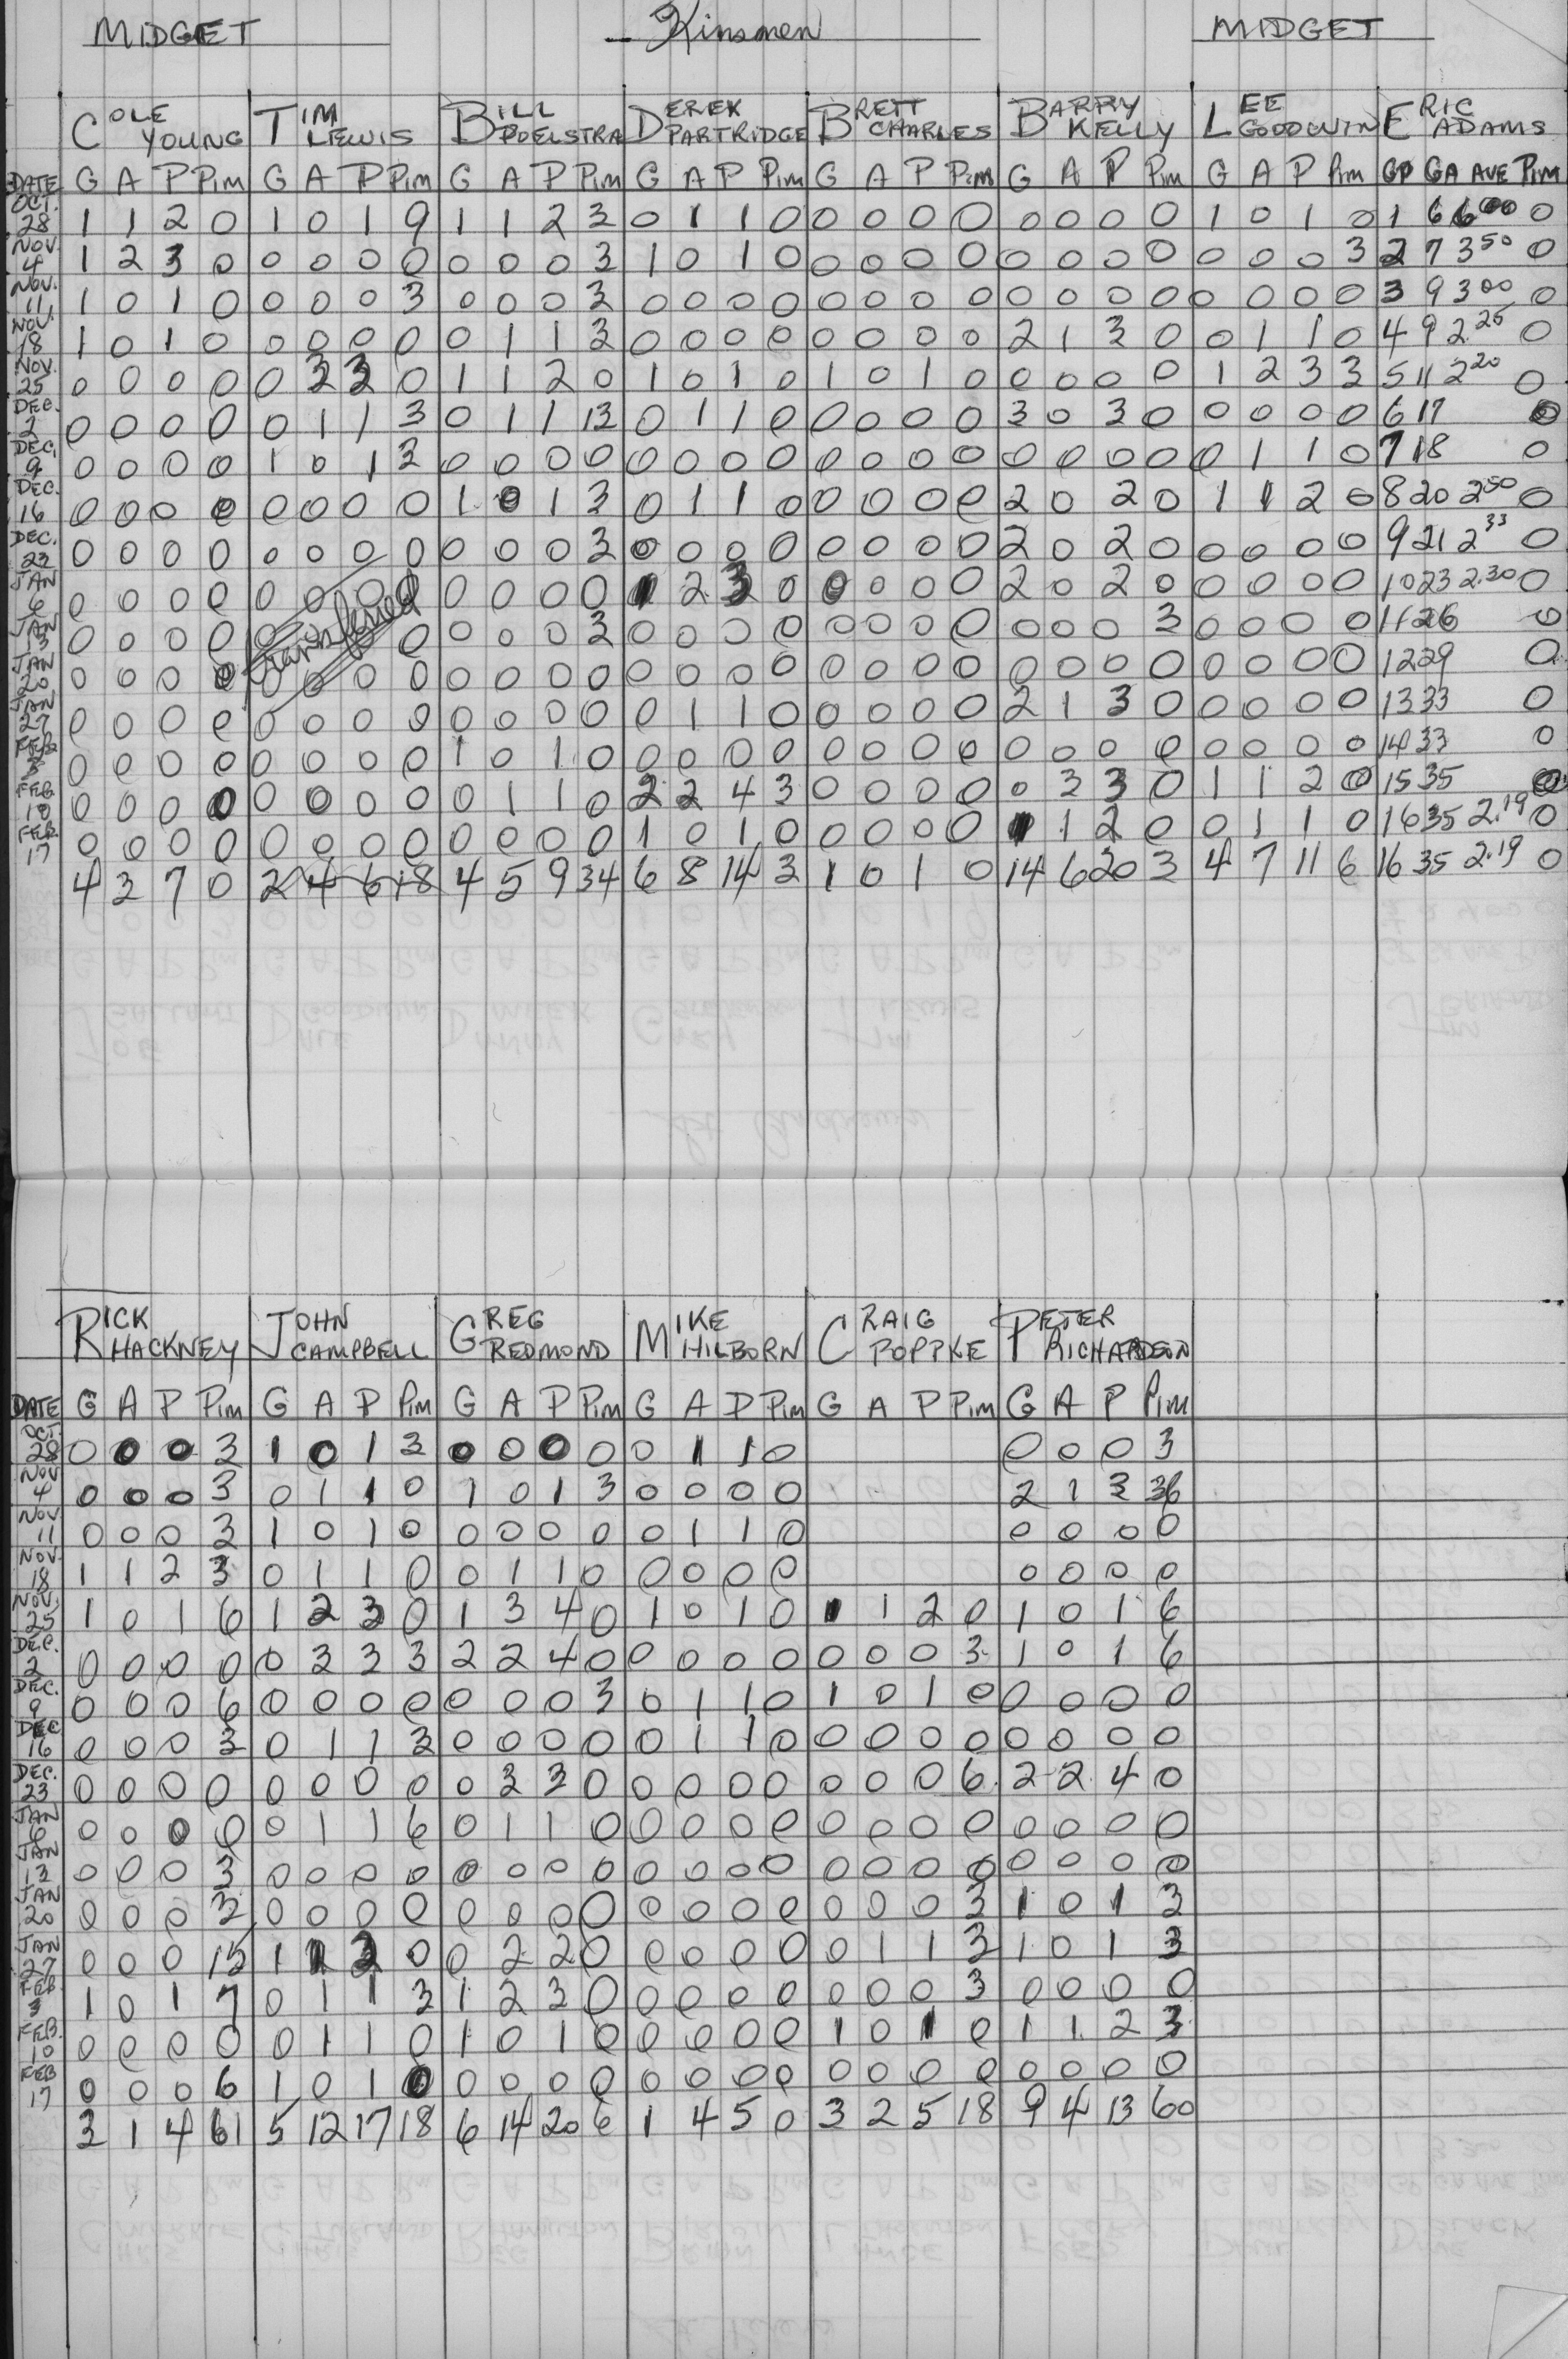 MIDGET Kinsmen MIDGET
COLE YOUNG TIM LEWIS BILL POELSTRA DEREK PARTRIDGE BRETT CHARLES BARRY KELLY LEE GOODWIN ERIC ADAMS
DATE G A P Pim G A P Pim G A P Pim G A P Pim G A P Pim G A P Pim G A P Pim GP GA AVE Pim
OCT. 28 1 1 2 0 1 0 1 9 1 1 2 3 0 1 1 0 0 0 0 0 0 0 0 0 1 0 1 0 1 6 6.00 0
NOV. 4 1 2 3 0 0 0 0 0 0 0 0 3 1 0 1 0 0 0 0 0 0 0 0 0 0 0 0 3 2 7 3 50 0
NOV. 11 1 0 1 0 0 0 0 3 0 0 0 3 0 0 0 0 0 0 0 0 0 0 0 0 0 0 0 0 3 9 3 00 0
NOV. 18 1 0 1 0 0 0 0 0 0 1 1 3 0 0 0 0 0 0 0 0 2 1 3 0 0 1 1 0 4 9 2.25 0
NOV. 25 0 0 0 0 0 3 3 0 1 1 2 0 1 0 1 0 1 0 1 0 0 0 0 0 1 2 3 3 5 11 2 20 0
DEC. 2 0 0 0 0 0 1 1 3 0 1 1 13 0 1 1 0 0 0 0 0 3 0 3 0 0 0 0 0 6 17 0
DEC. 9 0 0 0 0 1 0 1 3 0 0 0 0 0 0 0 0 0 0 0 0 0 0 0 0 0 1 1 0 7 18 0
DEC. 16 0 0 0 0 0 0 0 0 1 0 1 3 0 1 1 0 0 0 0 0 2 0 2 0 1 1 2 0 8 20 2 50 0
DEC. 23 0 0 0 0 0 0 0 0 0 0 0 3 0 0 0 0 0 0 0 0 2 0 2 0 0 0 0 0 9 21 2 33 0
JAN 6 0 0 0 0 0 0 0 0 0 0 0 0 1 2 3 0 0 0 0 0 2 0 2 0 0 0 0 0 10 23 2.30 0
JAN 13 0 0 0 0 0 transferred 0 0 0 0 3 0 0 0 0 0 0 0 0 0 0 0 3 0 0 0 0 11 26 0
JAN 20 0 0 0 0 0 0 0 0 0 0 0 0 0 0 0 0 0 0 0 0 0 0 0 0 0 0 0 0 12 29 0
JAN 27 0 0 0 0 0 0 0 0 0 0 0 0 0 1 1 0 0 0 0 0 2 1 3 0 0 0 0 0 13 33 0
FEB 3 0 0 0 0 0 0 0 0 1 0 1 0 0 0 0 0 0 0 0 0 0 0 0 0 0 0 0 0 14 33 0
FEB 10 0 0 0 0 0 0 0 0 0 1 1 0 2 2 4 3 0 0 0 0 0 3 3 0 1 1 2 0 15 35 0
FEB. 17 0 0 0 0 0 0 0 0 0 0 0 0 1 0 1 0 0 0 0 0 1 1 2 0 0 1 1 0 16 35 2.19 0
4 3 7 0 2 4 6 18 4 5 9 34 6 8 14 3 1 0 1 0 14 6 20 3 4 7 11 6 16 35 2.19 0
RICK HACKNEY JOHN CAMPBELL GREG REDMOND MIKE HILBORN CRAIG POPPKE PETER RICHARDSON
DATE G A P Pim G A P Pim G A P Pim G A P Pim G A P Pim G A P Pim
OCT. 28 0 0 0 3 1 0 1 3 0 0 0 0 0 1 1 0 0 0 0 3
NOV 4 0 0 0 3 0 1 1 0 1 0 1 3 0 0 0 0 2 1 3 36
NOV 11 0 0 0 3 1 0 1 0 0 0 0 0 0 1 1 0 0 0 0 0
NOV. 18 1 1 2 3 0 1 1 0 0 1 1 0 0 0 0 0 0 0 0 0
NOV. 25 1 0 1 6 1 2 3 0 1 3 4 0 1 0 1 0 1 1 2 0 1 0 1 6
DEC. 2 0 0 0 0 0 3 3 3 2 2 4 0 0 0 0 0 0 0 0 3 1 0 1 6
DEC. 9 0 0 0 6 0 0 0 0 0 0 0 3 0 1 1 0 1 0 1 0 0 0 0 0
DEC 16 0 0 0 3 0 1 1 3 0 0 0 0 0 1 1 0 0 0 0 0 0 0 0 0
DEC. 23 0 0 0 0 0 0 0 0 0 3 3 0 0 0 0 0 0 0 0 6 2 2 4 0
JAN 6 0 0 0 0 0 1 1 6 0 1 1 0 0 0 0 0 0 0 0 0 0 0 0 0
JAN 13 0 0 0 3 0 0 0 0 0 0 0 0 0 0 0 0 0 0 0 0 0 0 0 0
JAN 20 0 0 0 3 0 0 0 0 0 0 0 0 0 0 0 0 0 0 0 3 1 0 1 3
JAN 27 0 0 0 15 1 1 2 0 0 2 2 0 0 0 0 0 0 1 1 3 1 0 1 3
FEB. 3 1 0 1 7 0 1 1 3 1 2 3 0 0 0 0 0 0 0 0 3 0 0 0 0
FEB. 10 0 0 0 0 0 1 1 0 1 0 1 0 0 0 0 0 1 0 1 0 1 1 2 3
FEB 17 0 0 0 6 1 0 1 0 0 0 0 0 0 0 0 0 0 0 0 0 0 0 0 0
3 1 4 61 5 12 17 18 6 14 20 6 1 4 5 0 3 2 5 18 9 4 13 60